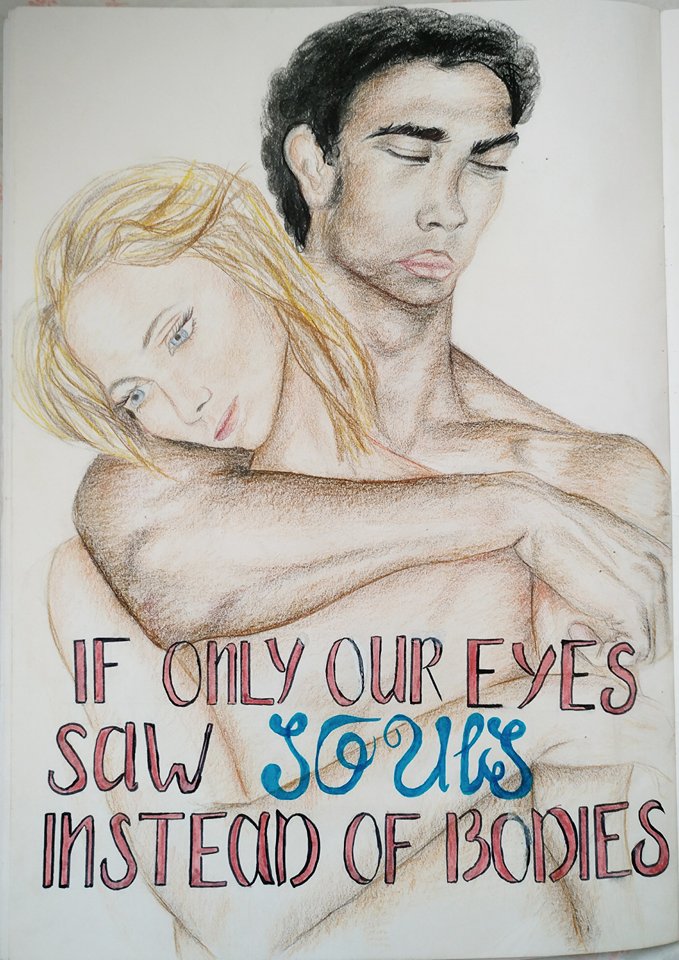 IF ONLY OUR EYES
SAW SOULS
INSTEAD OF BODIES